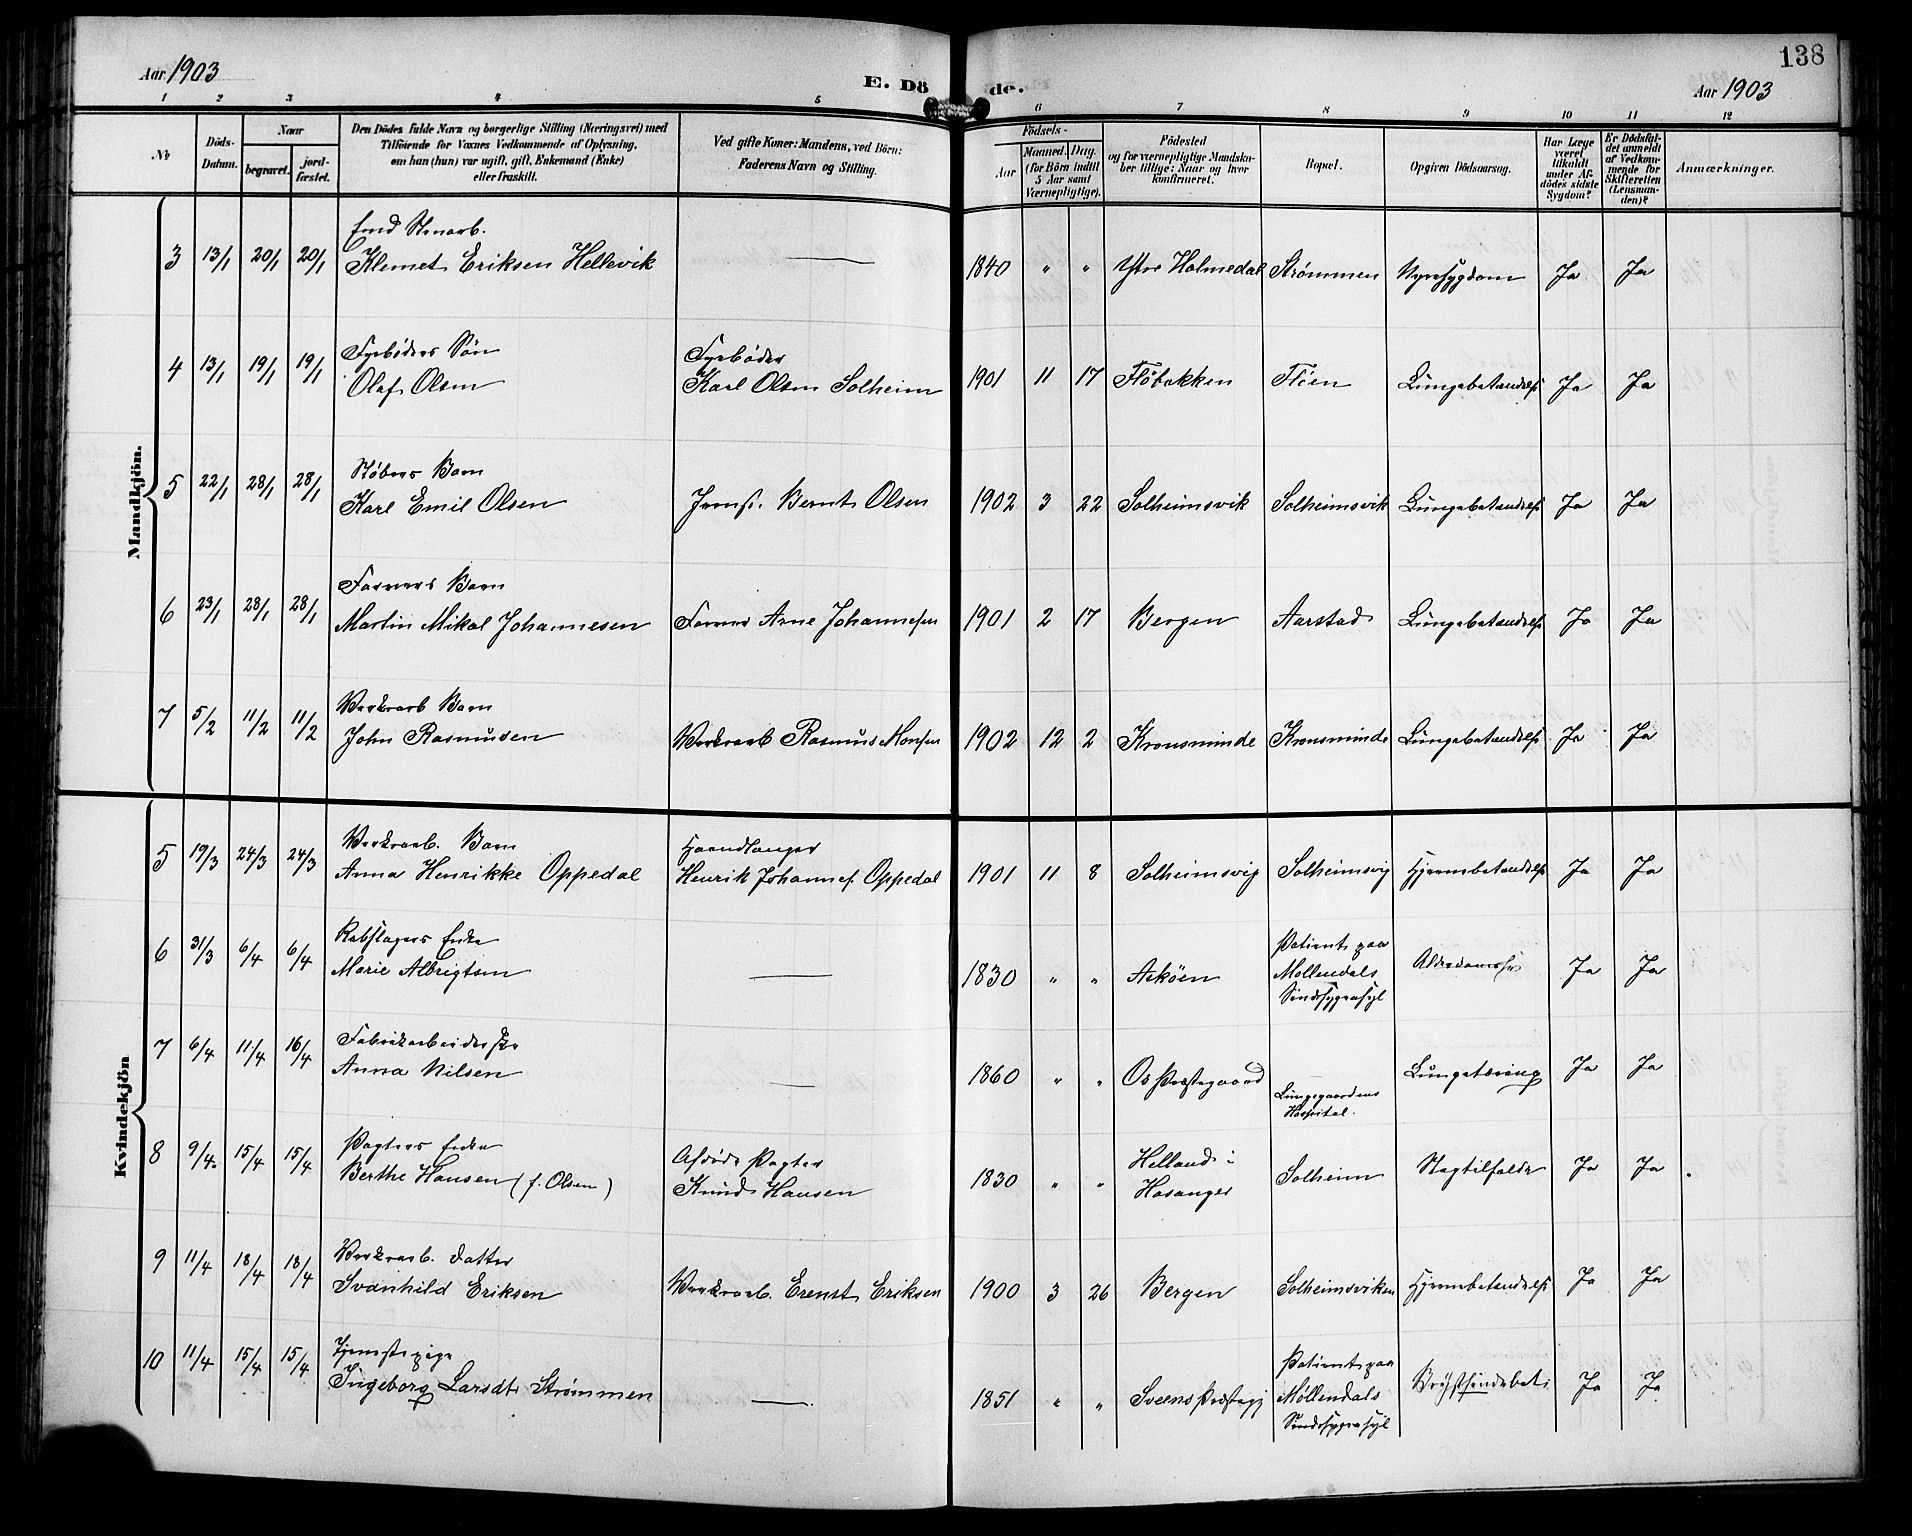 138
Aar 1903
E. Dö de.
Aar 1903
1 2 3 4 5 6 7 8 9 10 11 12
No
Döds-Datum.
Naar
begravet.
jord-fæstet.
Den Dödes fulde Navn og borgerlige Stilling (Næringsvei) med
Tilföiende for Voxnes Vedkommende af Oplysning,
om han (hun) var ugift, gift, Enkemand (Enke)
eller fraskilt.
Ved gifte Koner: Mandens, ved Börn:
Faderens Navn og Stilling.
Födsels-
Aar
Maaned. Dag.
(for Börn indtil
5 Aar samt
Værnepligtige).
Födested
og for værnepligtige Mandska-
ber tillige: Naar og hvor
konfirmeret.
Bopæl.
Opgiven Dödsaarsag.
Har Læge
været
tilkaldt
under Af-
dödes sidste
Sygdom?
Er Dödsfal-
det anmeldt
af Vedkom-
mende for
Skifteretten
(Lensman-
den)?
Anmærkninger.
Mandkjön.
3 13/1 20/1 20/1
Klemet Eriksen Hellevik
—
1840 " " Ytre Holmedal Strømmen Nyresygdom Ja Ja
Fyrbøders Søn Fyrbøder
4 13/1 19/1 19/1 Olaf Olsen Karl Olsen Solheim 1901 11 17 Fløbakken Fløen Lungebetændelse Ja Ja
Støbers Barn
5 22/1 28/1 28/1 Karl Emil Olsen Jernst. Bernt Olsen 1902 3 22 Solheimsvik Solheimsvik Lungebetændelse Ja Ja
Farvers Barn
6 23/1 28/1 28/1 Martin Mikal Johannesen Farver Arne Johannesen 1901 2 17 Bergen Aarstad Lungebetændelse Ja Ja
Værksarb Barn
7 5/2 11/2 11/2 John Rasmusen Værksarb Rasmus Monsen 1902 12 2 Kronsminde Kronsminde Lungebetændelse Ja Ja
Kvindekjön
Værksarb. Barn Haandlanger
5 19/3 24/3 24/3 Anna Henrikke Oppedal Henrik Johannes. Oppedal 1901 11 8 Solheimsvig Solheimsvig Hjernebetændelse Ja Ja
Rebslagers Enke
6 31/3 6/4 6/4 Marie Albrigtsen — 1830 " " Askøen Patient paa
Møllendals
Sindssygeasyl
Ja Ja
Fabrikarbeiderske
7 6/4 11/4 16/4 Anna Nilsen — 1860 " " Os Præstegaard Lungegaardens
Hospital.
Lungetæring Ja Ja
Pagters Enke Afdøde Pagter
8 9/4. 15/4 15/4 Berthe Hansen (f. Olsen) Knud Hansen 1830 " " Helland i
Hosanger
Solheim Slagtilfælde Ja Ja
Værksarb. Datter
9 11/4 18/4 18/4 Svanhild Eriksen Værksarb. Ernst Eriksen 1900 3 26 Bergen Solheimsviken Hjernebetændelse Ja Ja
Tjenestepige
10 11/4 15/4 15/4 Ingeborg Larsdtr Strømmen — 1851 " " Sveens Præstegj Patient paa
Møllendals
Sindssygeasyl
Ja Ja